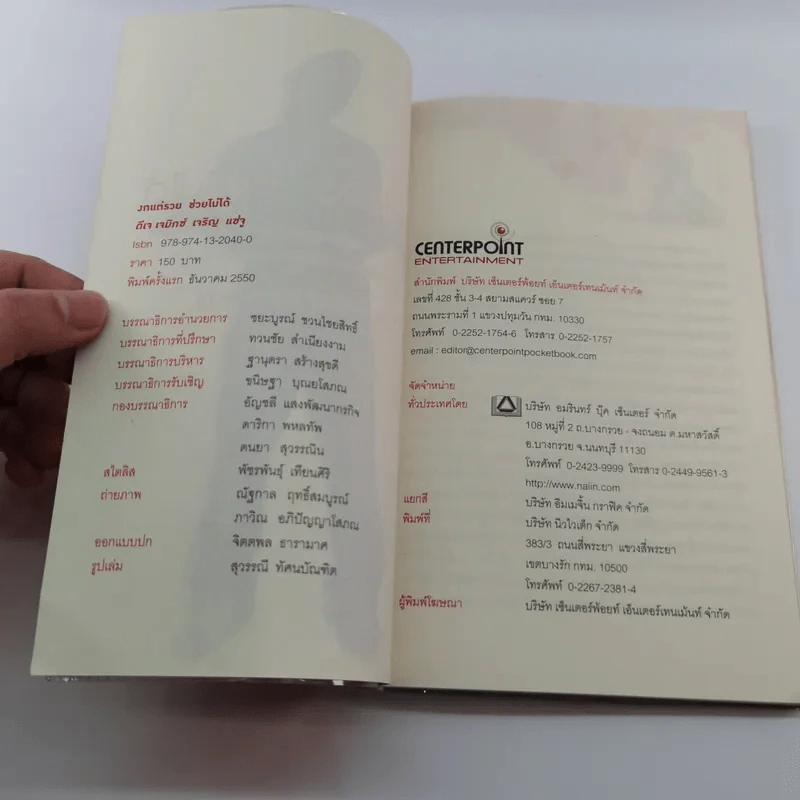 งกแต่รวย ช่วยไม่ได้
ดีเจ เจมิกซ์ เจริญ แซ่จู
Isbn 978-974-13-2040-0
ราคา 150 บาท
พิมพ์ครั้งแรก ธันวาคม 2550
บรรณาธิการอำนวยการ ชยะบูรณ์ ชวนไชยสิทธิ์
บรรณาธิการที่ปรึกษา ทวนชัย สำเนียงงาม
บรรณาธิการบริหาร ฐานุตรา สร้างสุขดี
บรรณาธิการรับเชิญ ขนิษฐา บุณยโสภณ
กองบรรณาธิการ อัญชลี แสงพัฒนากรกิจ
ดาริกา พหลทัพ
ตนยา สุวรรณิน
สไตลิส พัชรพันธุ์ เทียนศิริ
ถ่ายภาพ ณัฐกาล ฤทธิ์สมบูรณ์
ภาวิณ อภิปัญญาโสภณ
ออกแบบปก จิตตพล ธารามาศ
รูปเล่ม สุวรรณี ทัศนบัณฑิต
CENTERPOINT
ENTERTAINMENT
สำนักพิมพ์ บริษัท เซ็นเตอร์พ้อยท์ เอ็นเตอร์เทนเม้นท์ จำกัด
เลขที่ 428 ชั้น 3-4 สยามสแควร์ ซอย 7
ถนนพระรามที่ 1 แขวงปทุมวัน กทม. 10330
โทรศัพท์ 0-2252-1754-6 โทรสาร 0-2252-1757
email : editor@centerpointpocketbook.com
จัดจำหน่าย
ทั่วประเทศโดย บริษัท อมรินทร์ บุ๊ค เซ็นเตอร์ จำกัด
108 หมู่ที่ 2 ถ.บางกรวย - จงถนอม ต.มหาสวัสดิ์
อ.บางกรวย จ.นนทบุรี 11130
โทรศัพท์ 0-2423-9999 โทรสาร 0-2449-9561-3
http://www.naiin.com
แยกสี บริษัท อิมเมจิ้น กราฟิค จำกัด
พิมพ์ที่ บริษัท นิวไวเต็ก จำกัด
383/3 ถนนสี่พระยา แขวงสี่พระยา
เขตบางรัก กทม. 10500
โทรศัพท์ 0-2267-2381-4
ผู้พิมพ์โฆษณา บริษัท เซ็นเตอร์พ้อยท์ เอ็นเตอร์เทนเม้นท์ จำกัด